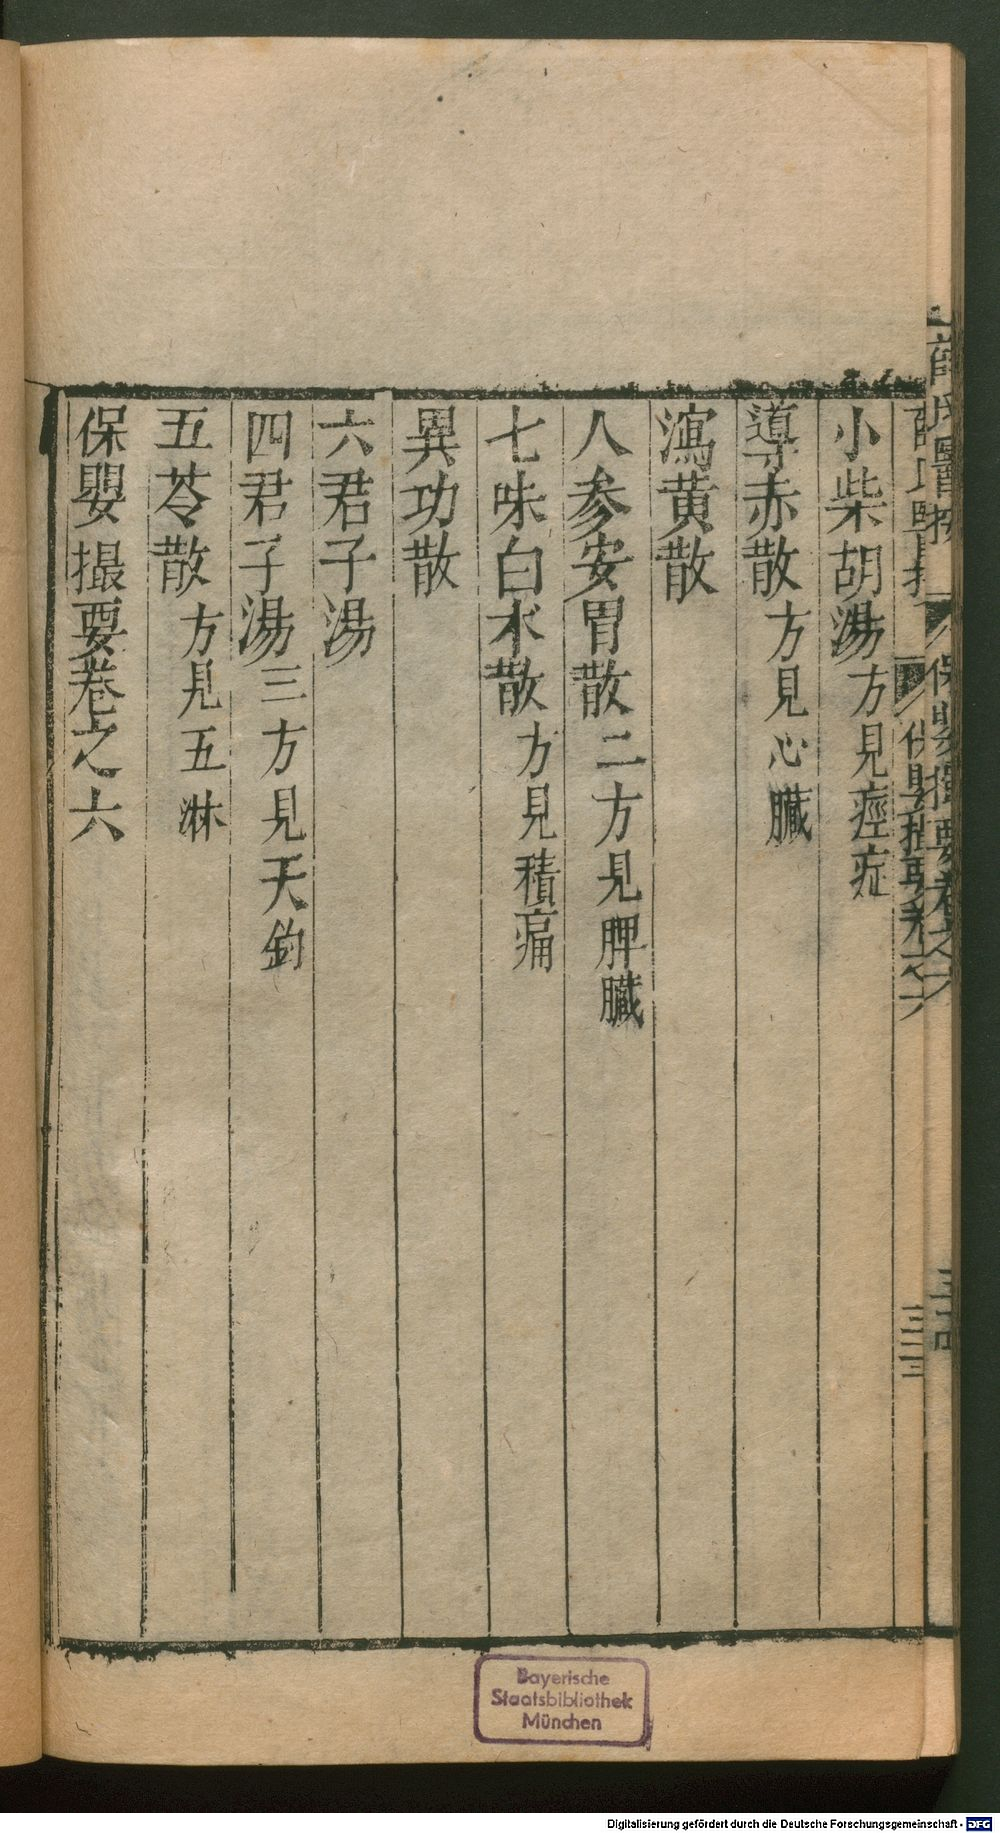 小柴胡湯方見痙症
導赤散方見心臟
瀉黃散
人參安胃散二方見脾臟
七味白朮散方見積痛
異功散
六君子湯
四君子湯三方見天釣
五苓散方見五淋
保嬰撮要卷之六
Bayerische
Staatsbibliothek
München
Digitalisierung gefördert durch die Deutsche Forschungsgemeinschaft - DFG